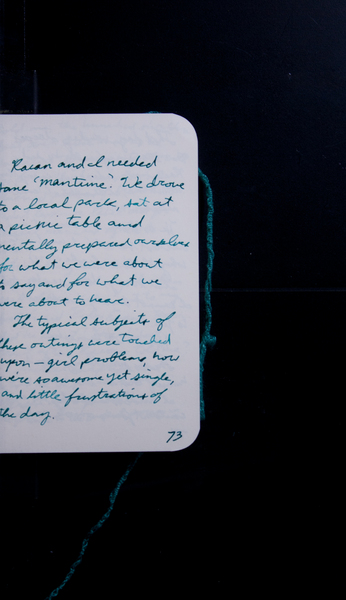 Rowan and I needed
some "mantime". We drove
to a local park, sat at
a picnic table and
mentally prepared ourselves
for what we were about
to say and for what we
were about to hear.
The typical subjects of
these outings were touched
upon – girl problems, how
we're so awesome yet single,
and little frustrations of
the day.
73